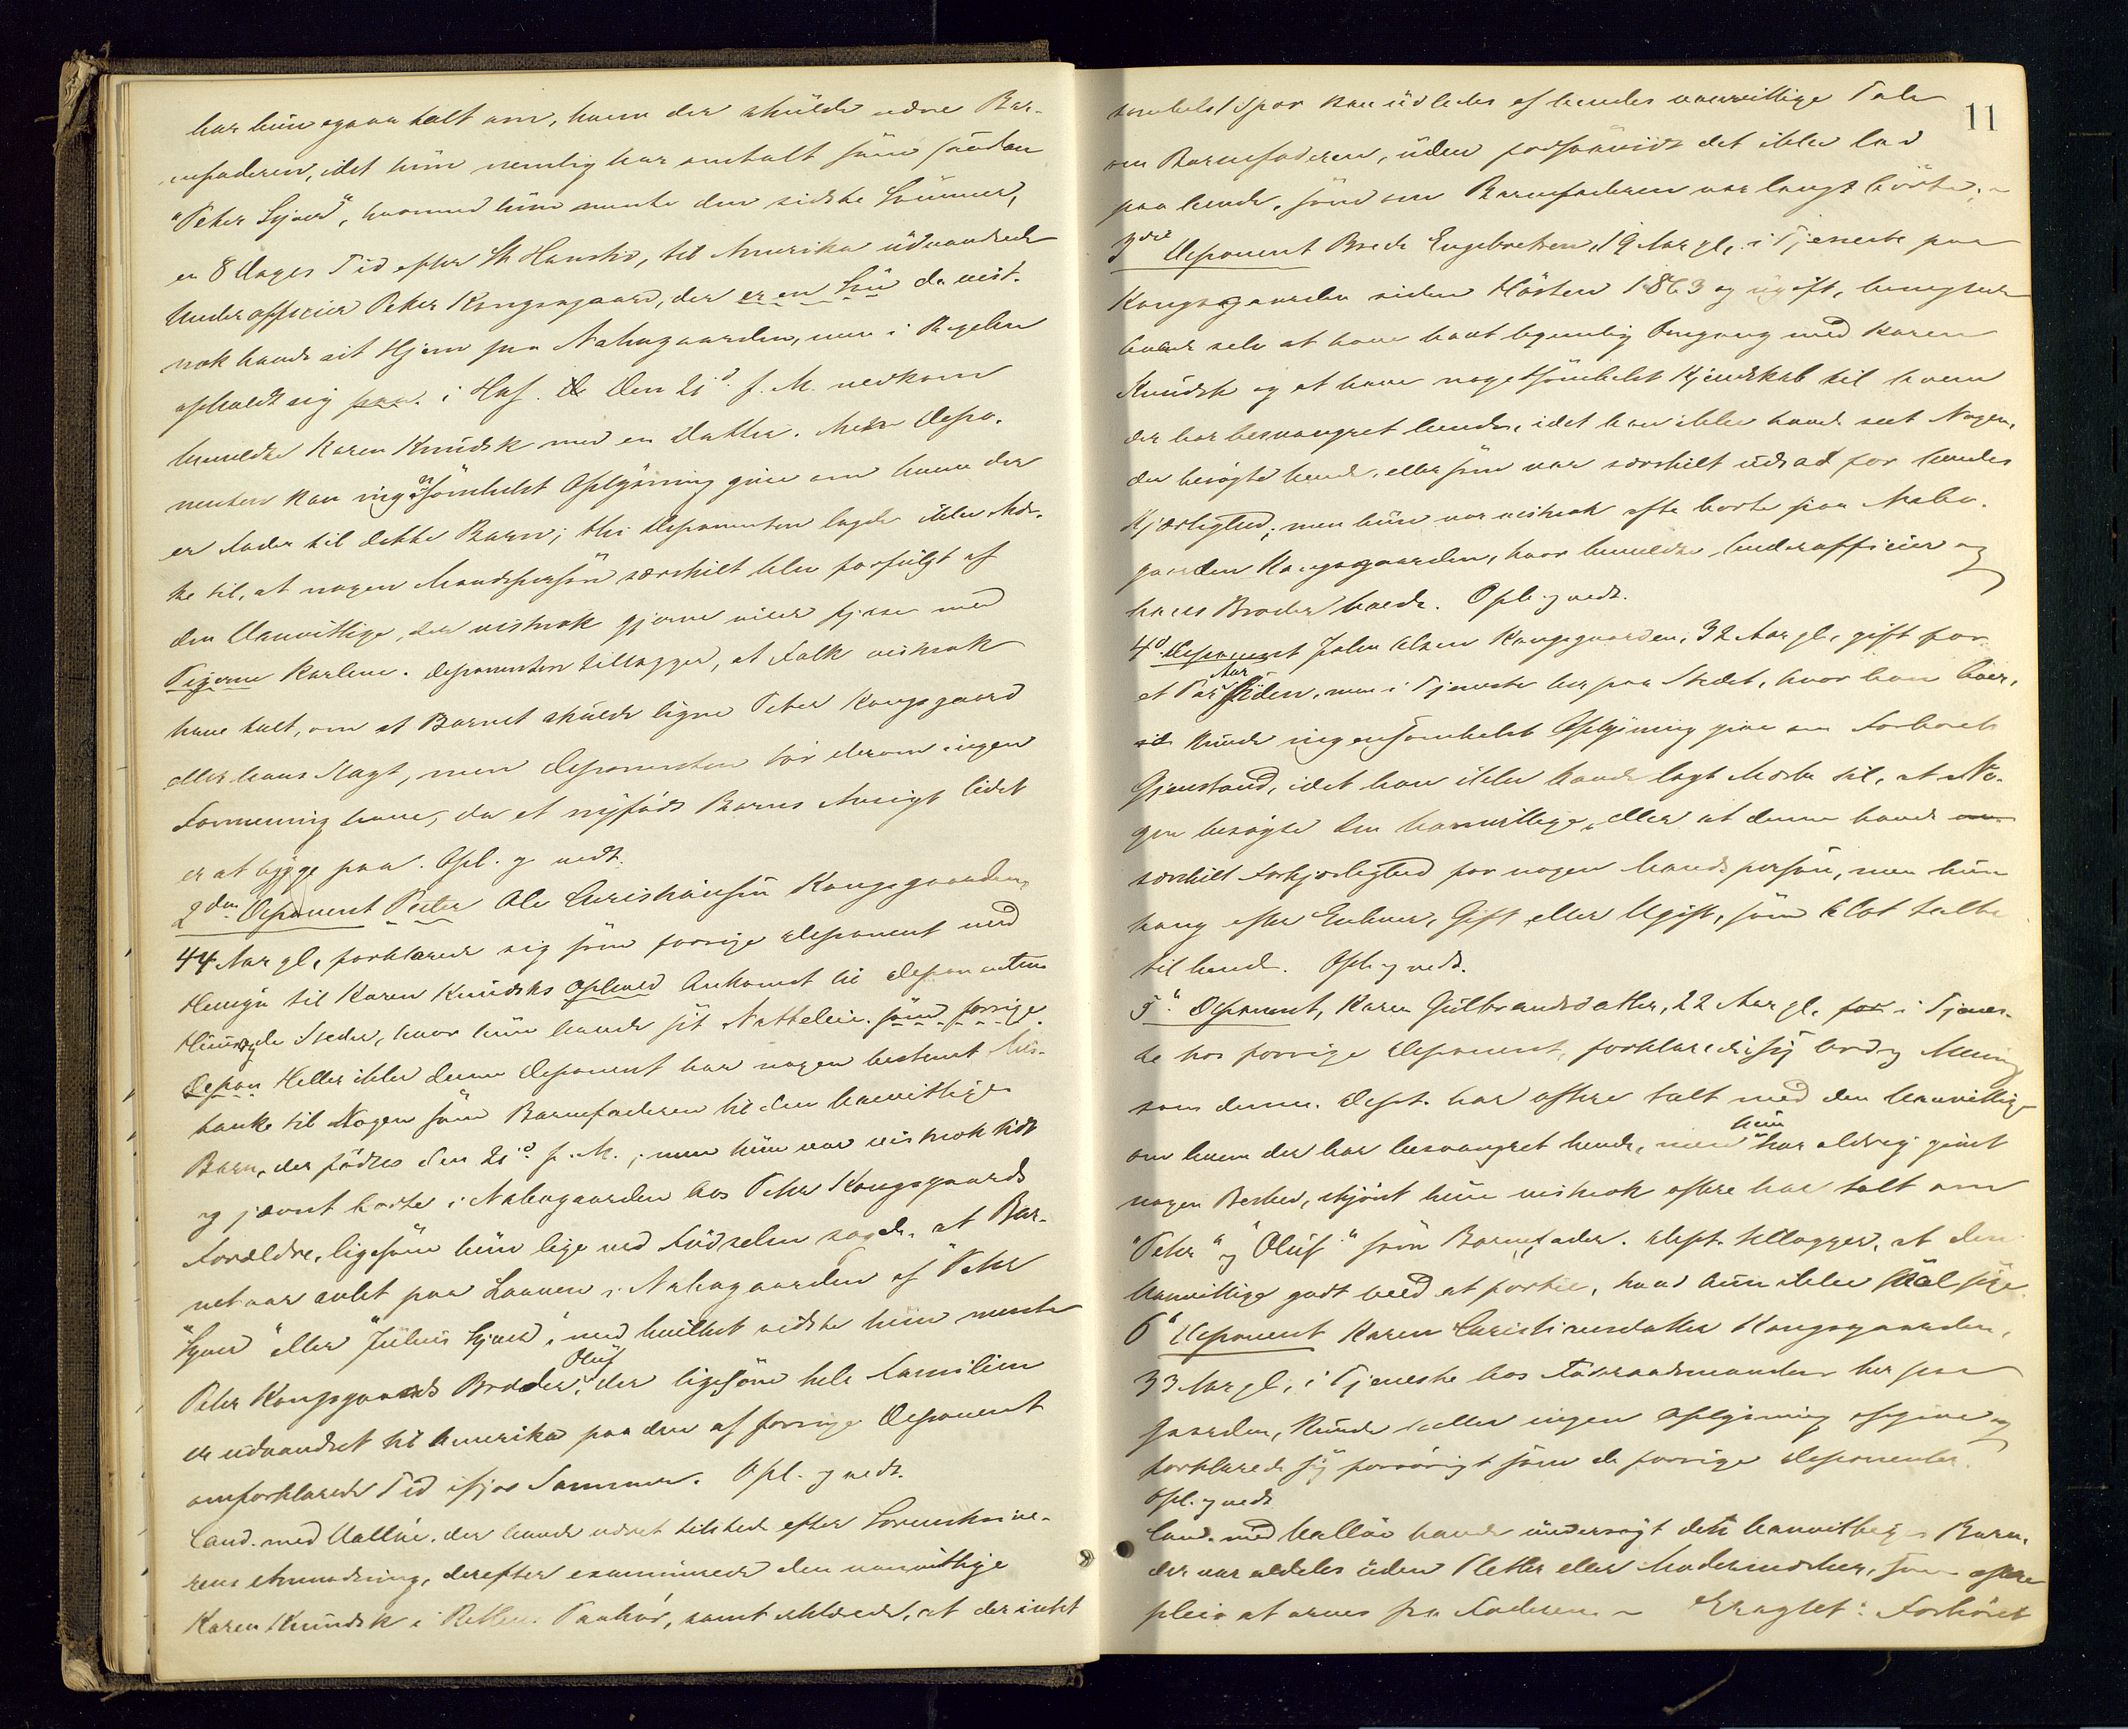 har hün ogsaa talt om, hvem der skülde være Bar-
nefaderen, idet hün nemlig har omtalt som saadan
"Peter Svard", hvormed hün mente den sidste Sommer,
en 8 Dages Tid efter St Hansti, til Amerika üdvandrede
Underofficier Peter Kongsgaard, der er en Sön de vist-
nok havde sit Hjem paa Nabogaarden, men i Regelen
opholdt sig paa i Haf. De Den 21de f. M. nedkom
bemeldte Karen Knüdsk med en Datter. Men Depo-
nenten kan ingensomhelst Oplysning give om hvem der
er Fader til dette Barn; thi Deponenten lagde ikke Mær-
ke til, at nogen Mandsperson særskilt blev forfülgt af
den Vanvittige, der vistnok gjerne vilde fjase med
Pigerne Karlene. Deponenten tillægger, at Folk vistnok
have talt, om at Barnet skülde ligne Peter Kongsgaard
eller hans Slægt, men Deponenten tör derom ingen
Formening have, da et nyfödt Barns Ansigt lidet
er at bygge paa. Opl. g vedt.
2den Deponent Peter Ole Christiansen Kongsgaarden
44 Aar gl, forklarede sig som forrige Deponent med
Hensyn til Karen Knüdsks Ophold Ankomst til Deponentens
Hüus og de Steder, hvor hün havde sit Natteleie. som forrige
Depon Heller ikke denne Deponent har nogen bestemt Mis-
tanke til Nogen som Barnefaderen til den Vanvittiges
Barn, der födtes den 21de f. M.; men hün var vistnok tidt
og jævnt borte i Nabogaarden hos Peter Kongsgaards
Forældre, ligesom hün lige ved Födselen sagde, at Bar-
net var avlet paa Laaven i Nabogaarden af "Peter
Svard" eller "Julius Svard", med hvilket sidste hün mente
Peter Kongsgaards Broder, Olüf der ligesom hele Familien
er üdvandret til Amerika paa den af forrige Deponent
omforklarede Tid ifjor Sommer. Opl. g vedt.
Cand. med Walløe, der havde været tilstede efter Sorenskrive-
rens Anmodning, derefter examinerede den vanvittige
Karen Knüdsk i Rettens Paahör, samt erklærede, at der intet
11
somhelst Spor kan üdledes af hendes vanvittige Tale
om Barnefaderen, üden forsaavidt det ikke lod
paa hende, som om Barnefaderen var langt börte.
3die Deponent Brede Engebretsen, 19 Aar gl, i Tjeneste paa
Kongsgaarden siden Hösten 1863 og ügift, benegtede
baade selv at have havt legemlig Omgang med Karen
Knüdsk og at have nogetsomhelst Kjendskab til hvem
der har besvangret hende, idet han ikke havde seet Nogen,
der besögte hende, eller som var særskilt üdsat for hendes
Kjærlighed; men hün var vistnok ofte borte paa Nabo-
gaarden Kongsgaarden, hvor bemeldte Underofficier og
hans Broder boede. Opl. g vedt.
4de Deponent Johan Olsen Kongsgaarden, 32 Aar gl, gift for
et Par Aar siden, men i Tjeneste her paa Stedet, hvor han boer,
künde ingensomhelst Oplysning give om Forhörets
Gjenstand, idet han ikke havde lagt Mærke til, at No-
gen besögte den Vanvittige, eller at denne havde
særskilt Forkjærlighed for nogen Mandsperson, men hün
hang efter Enhver, Gift eller Ugift, som blot talte
til hende. Opl. g vedt.
5te Deponent, Karen Gülbrandsdatter, 22 Aar gl, for i Tjenes-
te hos forrige Deponent, forklarede sig Ord og Mening
som denne. Dept. har oftere talt med den Vanvittige
om hvem der har besvangret hende, men hün har aldrig givet
nogen Besked, skjönt hün vistnok oftere har talt om
"Peter" og "Olüf" som Barnefader. Dept. tillægger, at den
Vanvittige godt veed at fortie, hvad hün ikke skal sige.
6te Deponent Karen Christiansdatter Kongsgaarden,
33 Aar gl, i Tjeneste hos Föderaadsmanden her paa
Gaarden, künde heller ingen Oplysning afgive og
forklarede sig forövrigt som de forrige Deponenter.
Opl. g vedt
Cand. med Walløe havde ündersögt dette Vanvittiges Barn,
der var aldeles üden Pletter eller Modermærker, som oftere
pleie at arves fra Faderen. – Eragtet: Forhöret